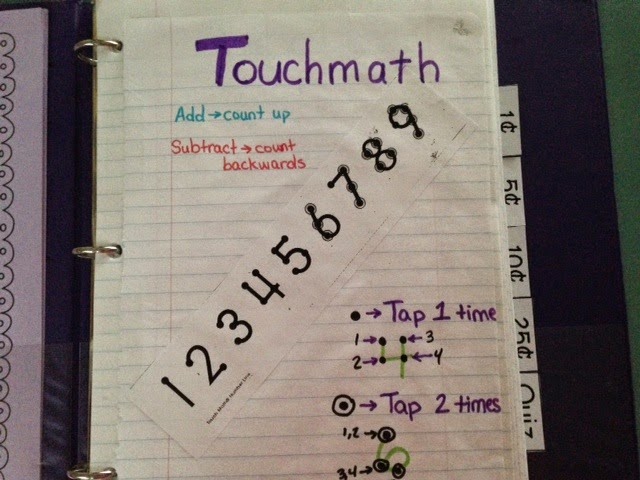 Touchmath
Add → count up
Subtract → count
backwards
1 2 3 4 5 6 7 8 9
Touch Math® Number Line
• → Tap 1 time
1 → ← 3
2 → ← 4
4
→ Tap 2 times
1,2 →
3,4 →
6
1¢
5¢
10¢
25¢
Quiz